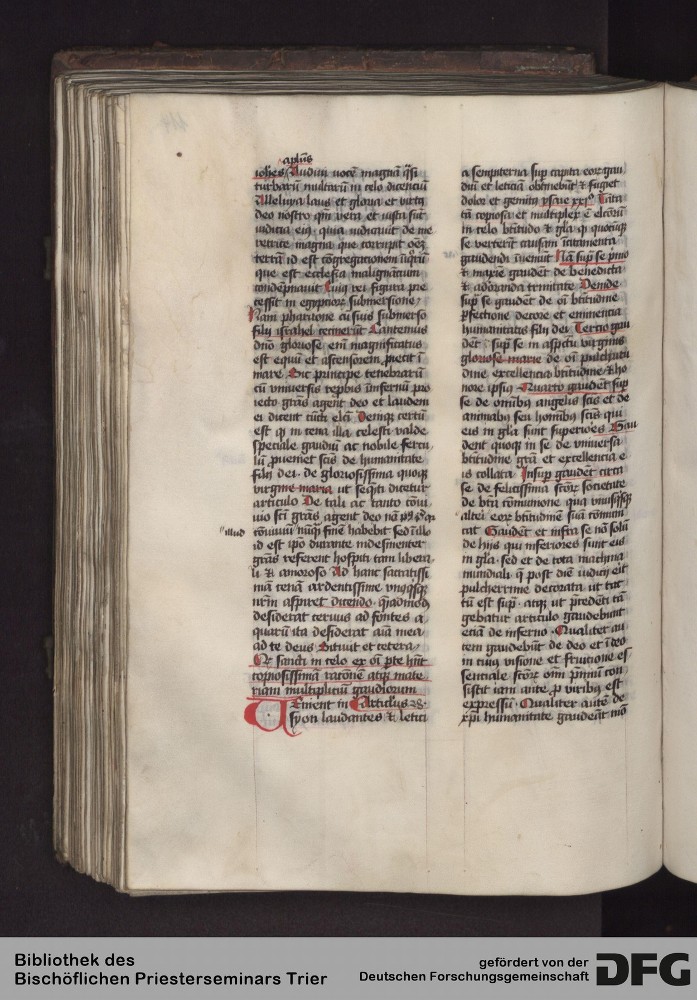 aplūs
ioħes Audiui vocē magnā q̄si
turbarū multarū in celo dicenciū
Alleluya laus et gloria et virtꝰ
deo nostro qm̄ vera et iusta sūt
iudicia eiꝰ quia iudicauit de me
retrice magna que corrupit
terrā id est cōgregacionem
que est ecclesia malignācium
condēpnauit Cuiꝰ rei figura p̄re
cessit in egypciorꝝ submersione
Nam pharaone cū suis submerso
filij israhel cecinerūt Cantemus
dn̄o gloriose enī magnificatus
est equū et ascensorem proiecit ī
mare Sic principe tenebrarū
cū vniuersis īn infernū pro
iecto grās agent deo et laudem
ei dicent cūcti elc̄i Deniqꝫ certū
est qꝫ in cena illa celesti valde
speciale gaudiū ac nobile fercu
lū proueniet scīs de humanitate
filij dei de gloriosissima quoqꝫ
virgine maria ut seqn̄ti dicetur
articulo De tali ac tanto cōui
uio sc̄i grās agent deo nā
illud
cōuiuiū nūqꝫ finē habebit sed illo
id est ip̄o durante indesinenter
grās referent hospiti tam libera
li et amoroso Ad hanc sacratissi
mā cenā ardentissime vnusqꝫ
nr̄m aspiret dicendo qꝫadmodū
desiderat ceruus ad fontes a
quarū ita desiderat aīa mea
ad te deus Sitiuit et cetera
Qꝫ sancti in celo ex oī pte hn̄t
copiosissimā racionē atqꝫ mate
riam multipliciū gaudiorum
Venient in Articulus 28
syon laudantes et leticī
a sempiterna sup capita eorꝝ gau
diū et leticiā obtinebūt et fugiet
dolor et gemitꝰ ysaie xxxvͦ Tāta
tā copiosa et multiplex ē elc̄orū
in celo btitudo et gl̄a qꝫ quocūqꝫ
se verterīt causam
gaudendi īuenīūt Nā sup se pͥmo
et maxīe gaudēt de benedicta
et adoranda trinitate Deinde
sup se gaudēt de oī btitudine
p̄fectione decore et eminencia
humanitatis filij dei Tercio gau
dēt sup se in aspectu virginis
gloriose marie de oī pulchritu
dine excellencia btitudine et ho
nore ipsiꝰ Quarto gaudēt sup
se de omībꝰ angelis scīs et de
animabꝰ seu homībꝰ scīs qui
eis in gl̄a sunt superiores Gau
dent quoqꝫ in se de vniuersa
btitudine grā et excellencia e
is collata Insup gaudēt circa
se de felicissima scōrꝝ societate
de btā cōmunione qua vnusqꝫ
alteri eorꝝ btitudinē suā cōmuni
cat Gaudēt et infra se nō solū
de hijs qui inferiores sunt eis
in gl̄a sed et de tota machina
mundiali qͣ post diē iudicij eīt
pulcherrime decorata ut tac
tū est supͣ atqꝫ ut p̄cedēti tā
gebatur articulo gaudebunt
eciā de inferno Qualiter au
tem gaudebūt de deo et ī deo
in cuiꝰ visione et fruicione es
sentiale scōrꝝ oīm p̄miū con
sistit iam ante pro viribus est
expressū Qualiter autē de
xpī humanitate gaudeāt
Bibliothek des
Bischöflichen Priesterseminars Trier
gefördert von der
Deutschen Forschungsgemeinschaft
DFG